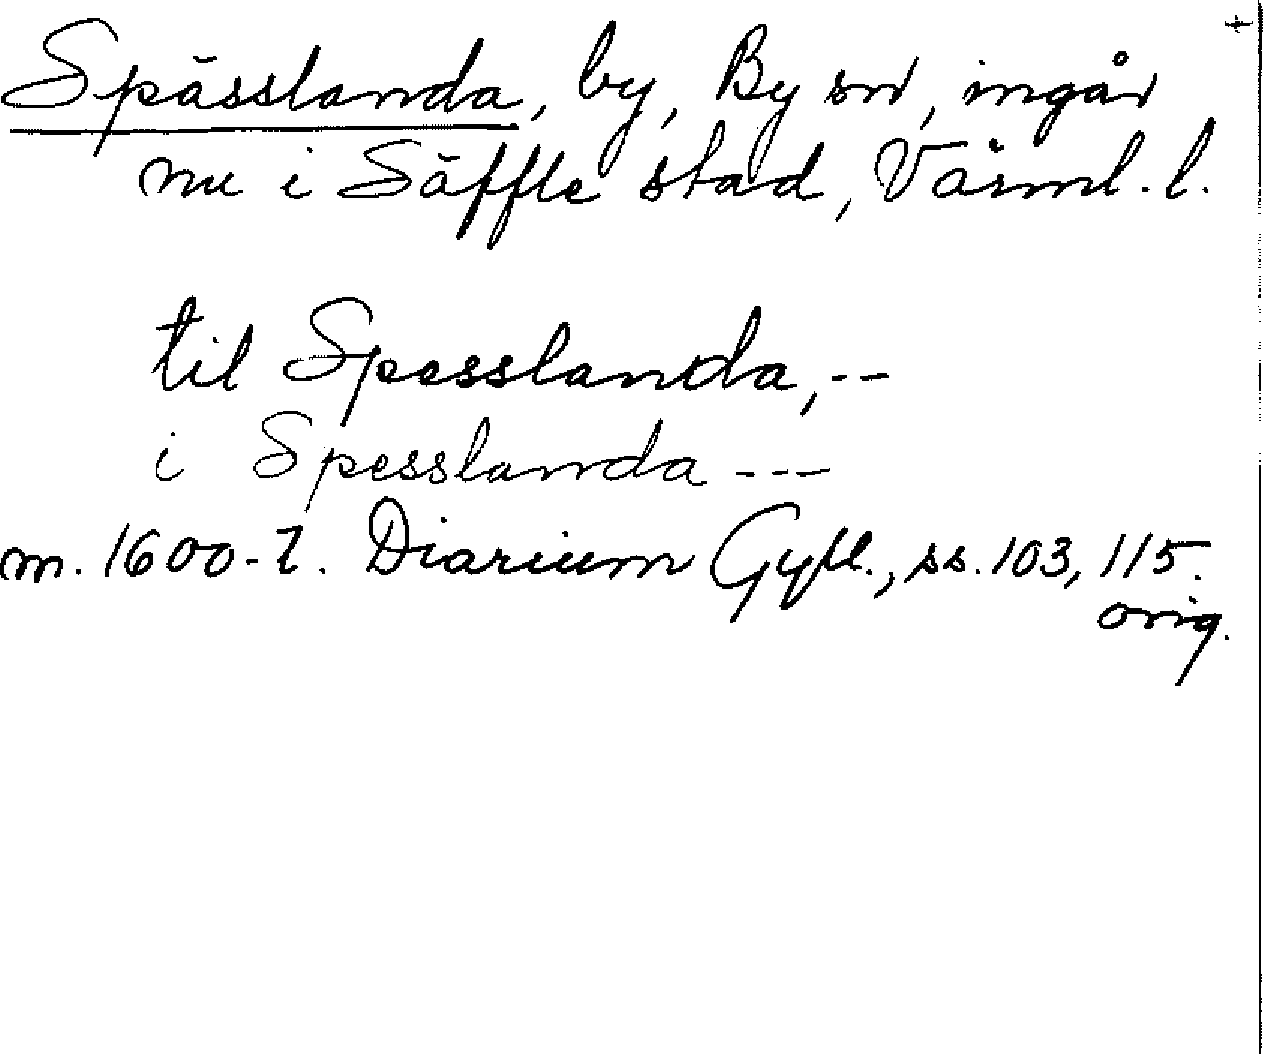 +
Spässlanda, by, By sn, ingår
nu i Säffle stad, Värml. l.
til Spesslanda, --
i Spesslanda ---
m. 1600-t. Diarium Gyll., ss. 103, 115.
orig.